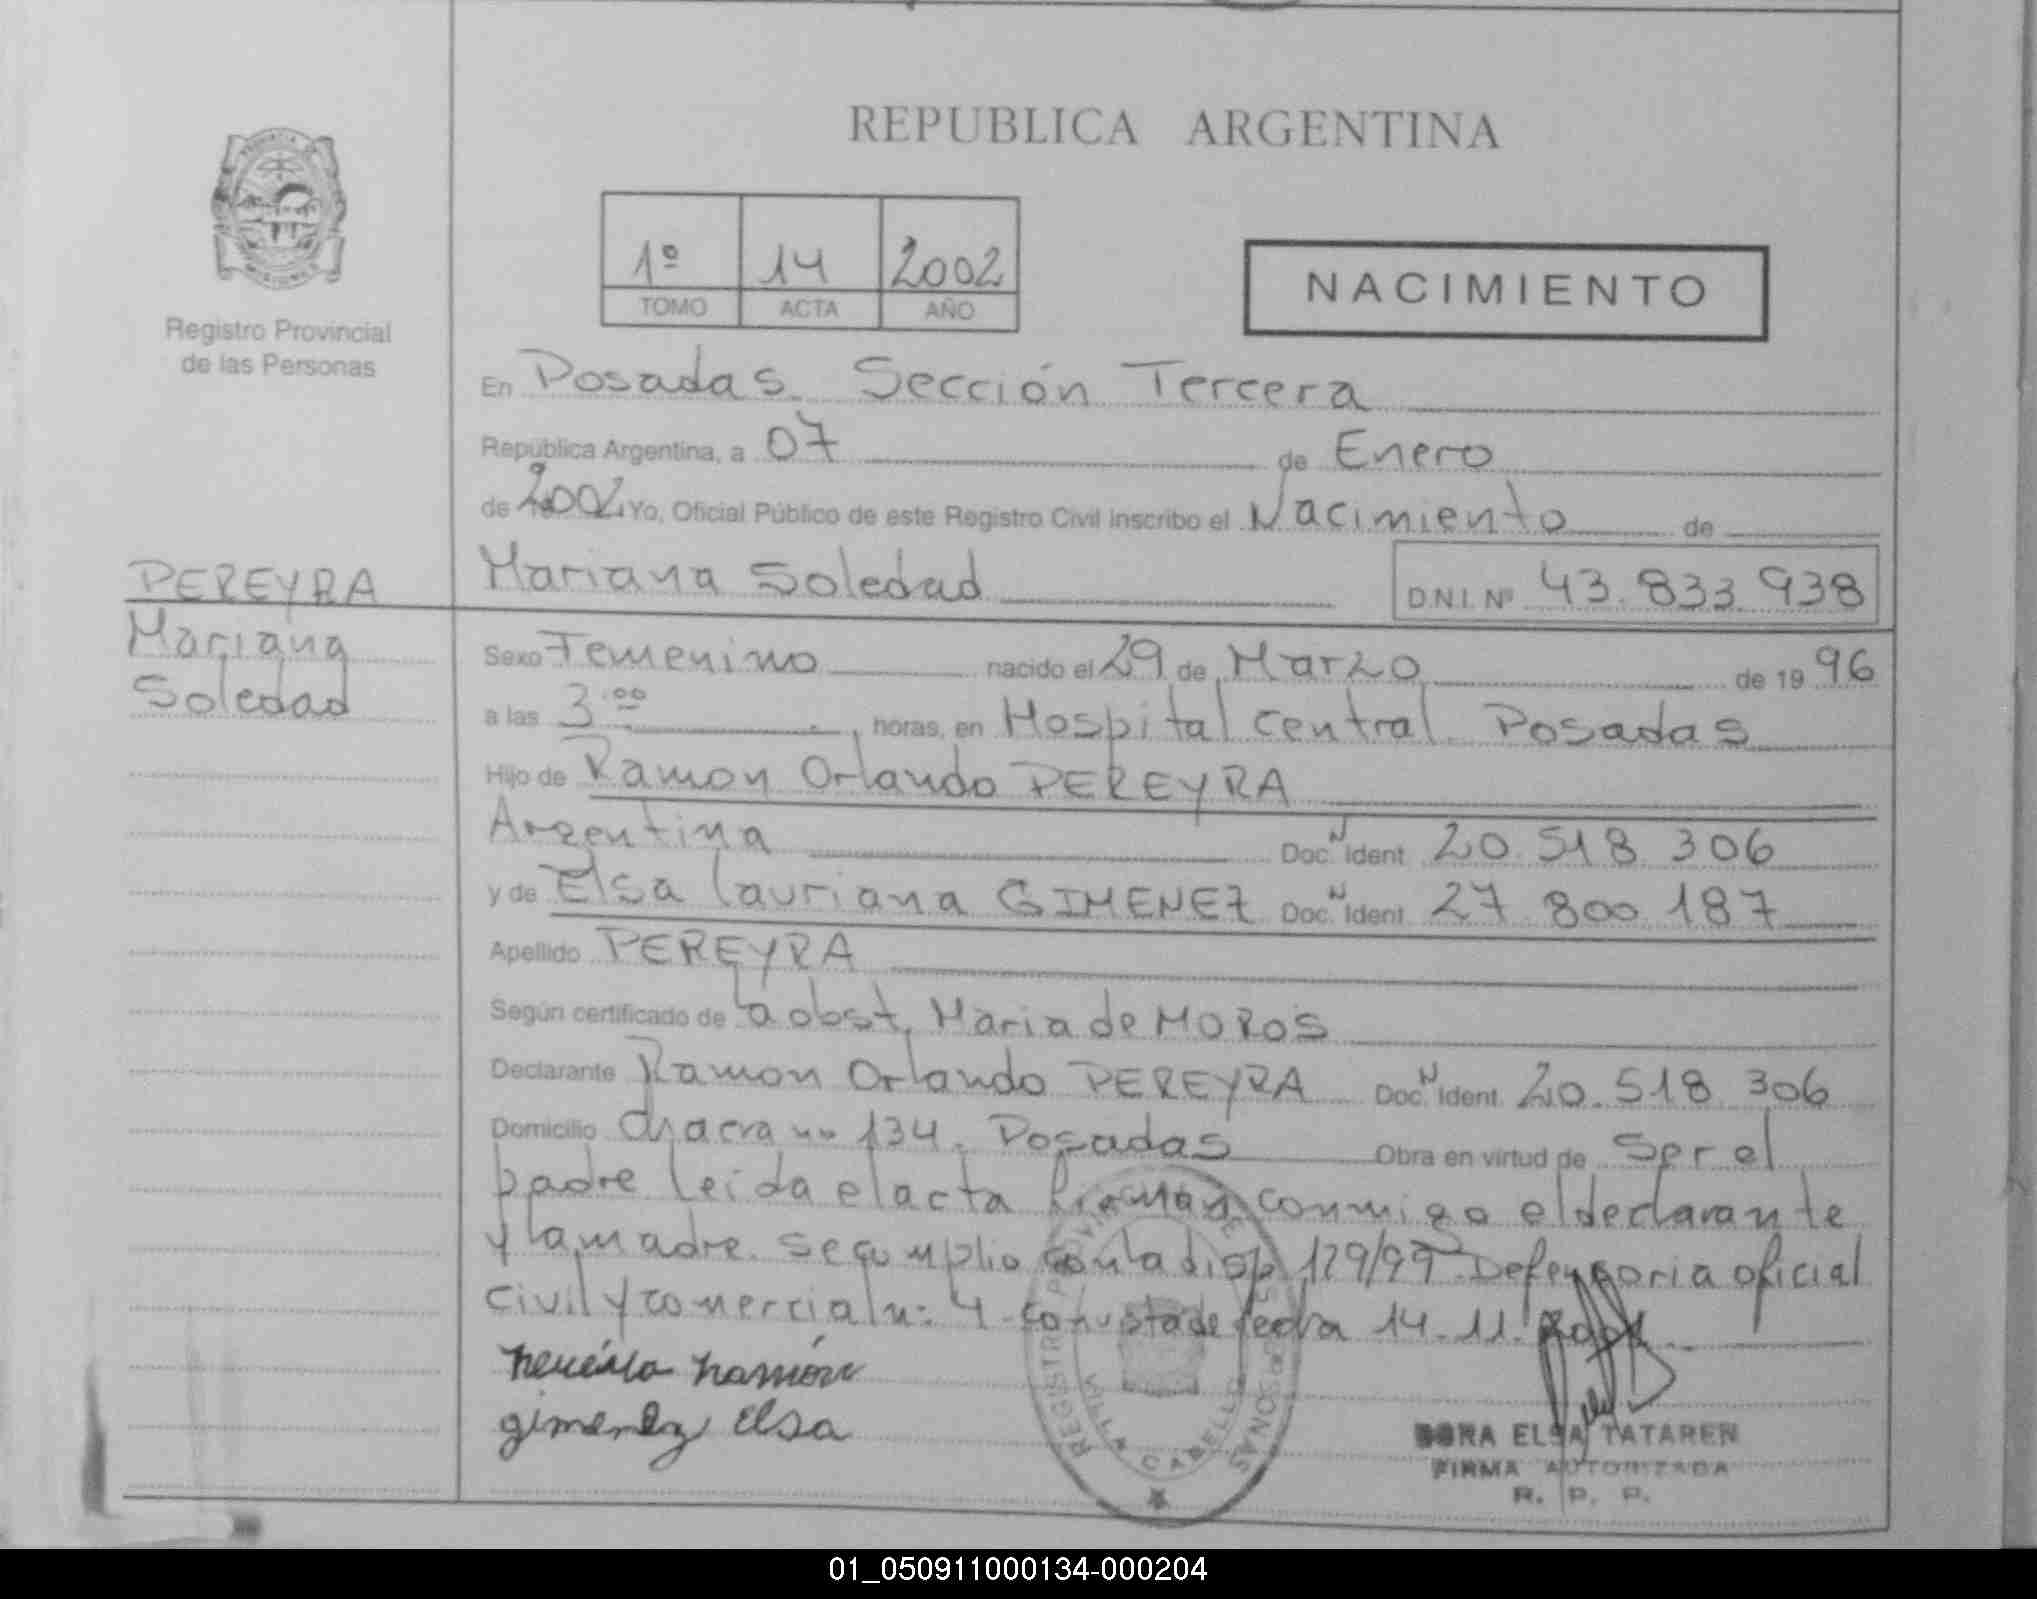 REPUBLICA ARGENTINA
1º 14 2002
TOMO ACTA AÑO
NACIMIENTO
Registro Provincial
de las Personas
En Posadas Sección Tercera
República Argentina, a 07 de Enero
de 2002 Yo, Oficial Público de este Registro Civil Inscribo el Nacimiento de
PEREYRA
Mariana
Soledad
Mariana Soledad D.N.I. Nº 43.833.938
Sexo Femenino nacido el 29 de Marzo de 19 96
a las 3:00 horas, en Hospital Central Posadas
Hijo de Ramon Orlando PEREYRA
Argentina Doc. N Ident 20.518.306
y de Elsa Lauriana GIMENEZ Doc. N Ident 27 800 187
Apellido PEREYRA
Según certificado de la obst. Maria de MOROS
Declarante Ramon Orlando PEREYRA Doc. N Ident 20.518.306
Domicilio Chacra nº 134. Posadas Obra en virtud de Ser el
padre leida el acta firman conmigo el declarante
y la madre. Se cumplio con la disp 129/99 Defensoria oficial
civil y comercial n: 4 con vista de fecha 14.11.
Ramón
gimenez Elsa
REGISTRO PROVINCIAL DE LAS PERSONAS
CABELLO
DORA ELSA TATAREN
FIRMA AUTORIZADA
R. P. P.
01_050911000134-000204